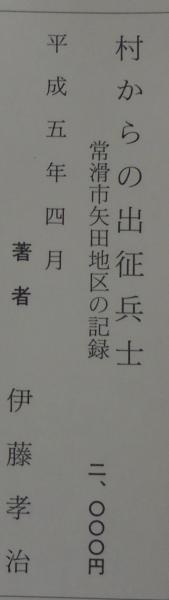 村からの出征兵士
常滑市矢田地区の記録
二、〇〇〇円
平成五年四月
著者 伊藤孝治